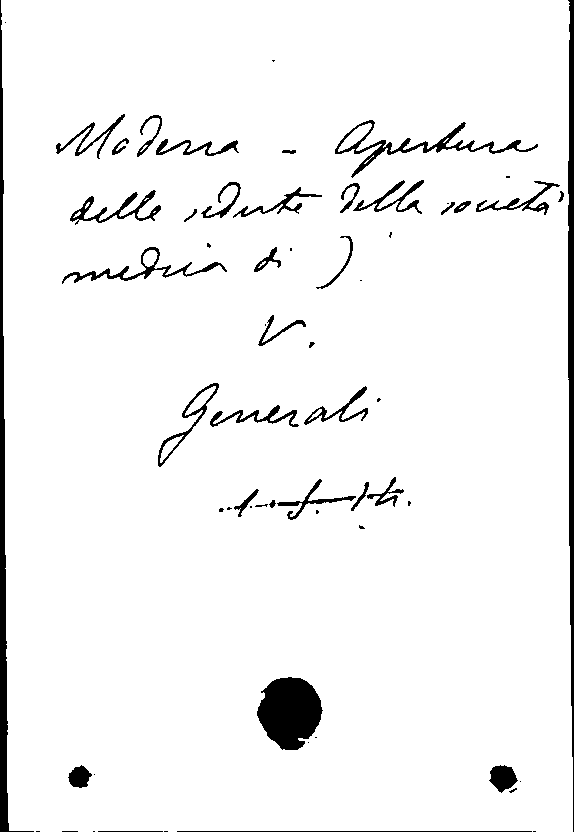 Modena - Apertura
delle sedute della società
medica di )
V.
Generali